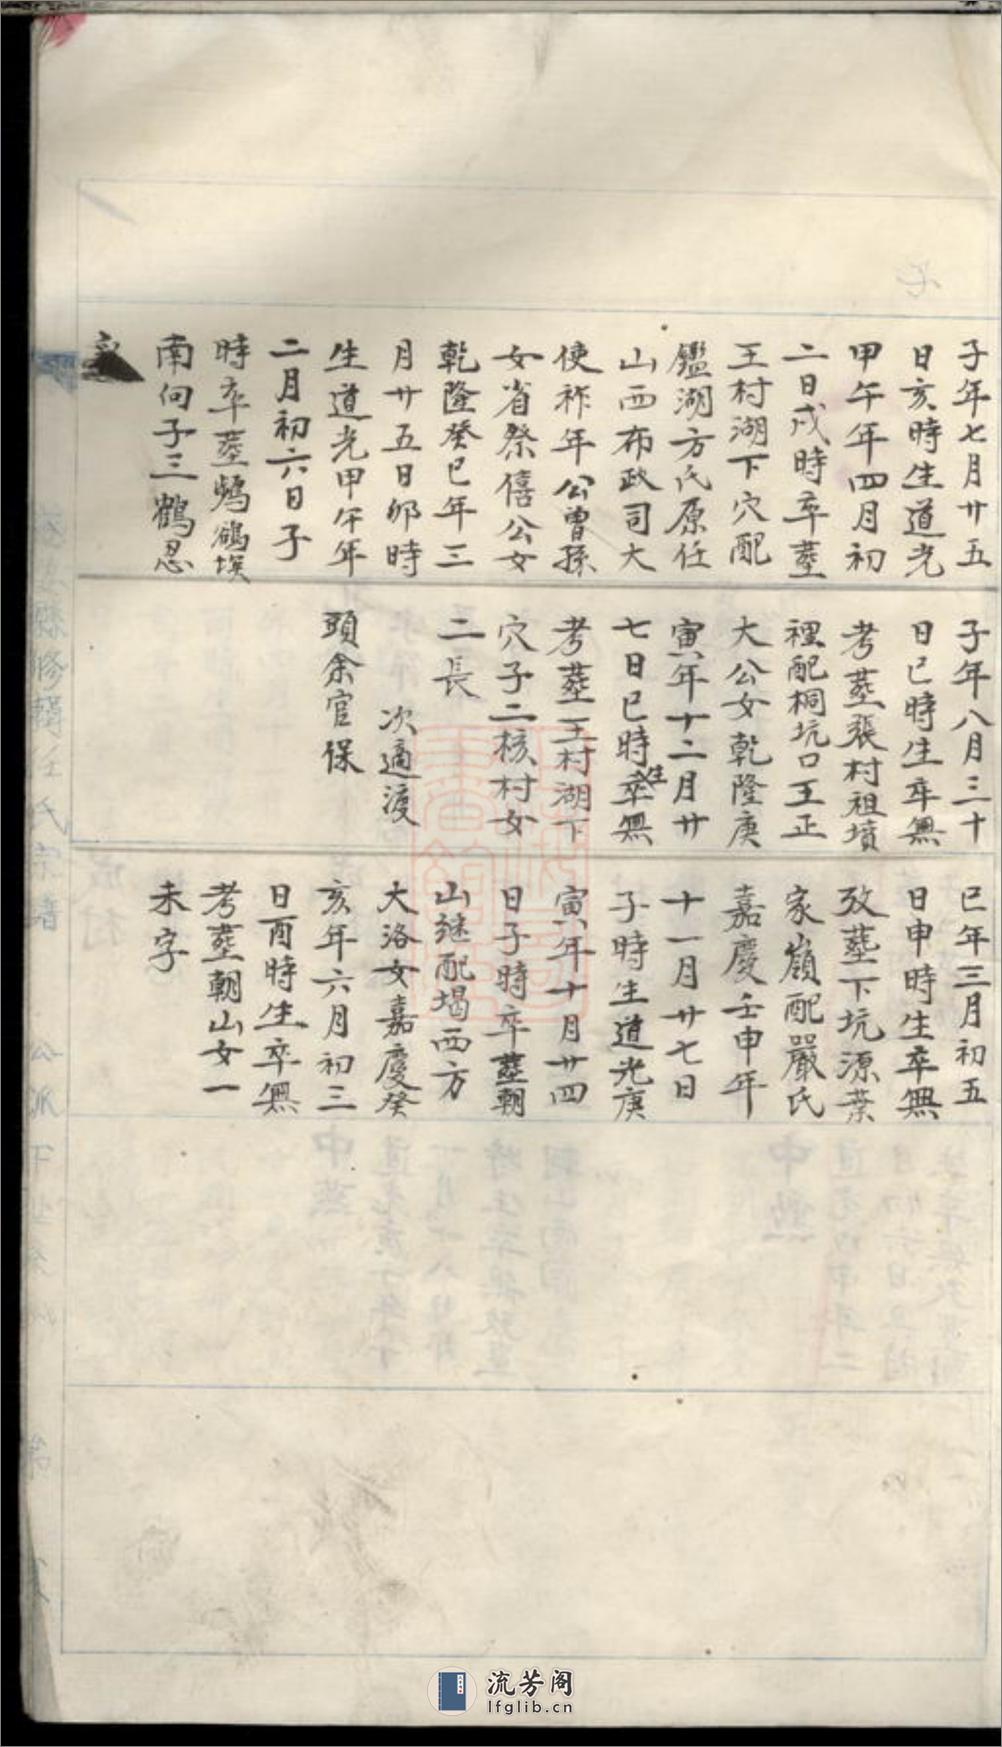 子年七月廿五
日亥時生道光
甲午年四月初
二日戌時卒塟
王村湖下穴配
鑑湖方氏原任
山西布政司大
使祚年公曾孫
女省祭僖公女
乾隆癸巳年三
月廿五日卯時
生道光甲午年
二月初六日子
時卒塟鷓鴣塽
南向子三鶴忍
子年八月三十
日巳時生卒無
考塟張村祖墳
裡配桐坑口王正
大公女乾隆庚
寅年十二月廿
七日巳時生卒無
考塟王村湖下
穴子二核村女
二長
次適渡
頭余官保
巳年三月初五
日申時生卒無
攷塟下坑源葉
家嶺配嚴氏
嘉慶壬申年
十一月廿七日
子時生道光庚
寅年十月廿四
日子時卒塟朝
山継配堨西方
大洛女嘉慶癸
亥年六月初三
日酉時生卒無
考塟朝山女一
未字
流芳阁
lfglib.cn